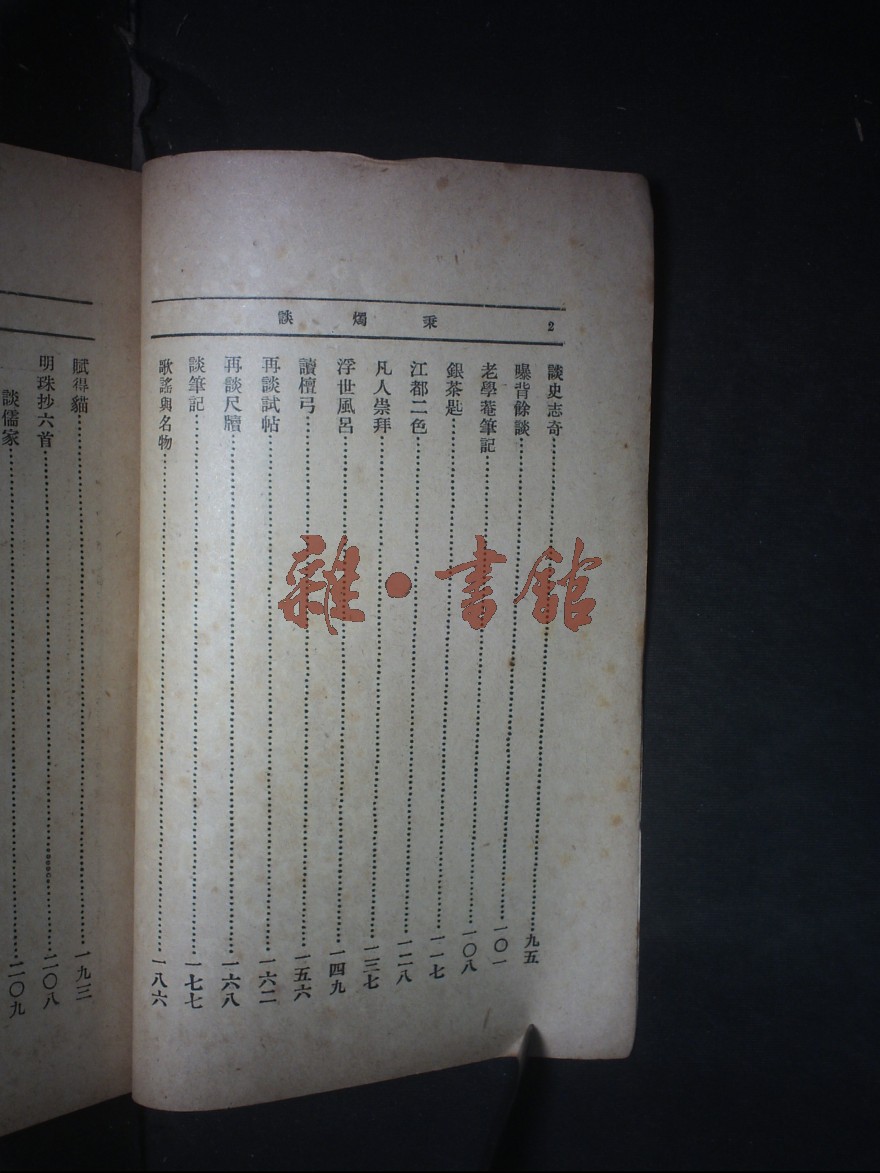 2 秉燭談
談史志奇……九五
曝背餘談……一〇一
老學菴筆記……一〇八
銀茶匙……一一七
江都二色……一二八
凡人崇拜……一三七
浮世風呂……一四九
讀檀弓……一五六
再談試帖……一六二
再談尺牘……一六八
談筆記……一七七
歌謠與名物……一八六
賦得貓……一九三
明珠抄六首……二〇八
談儒家……二〇九
雜·書館